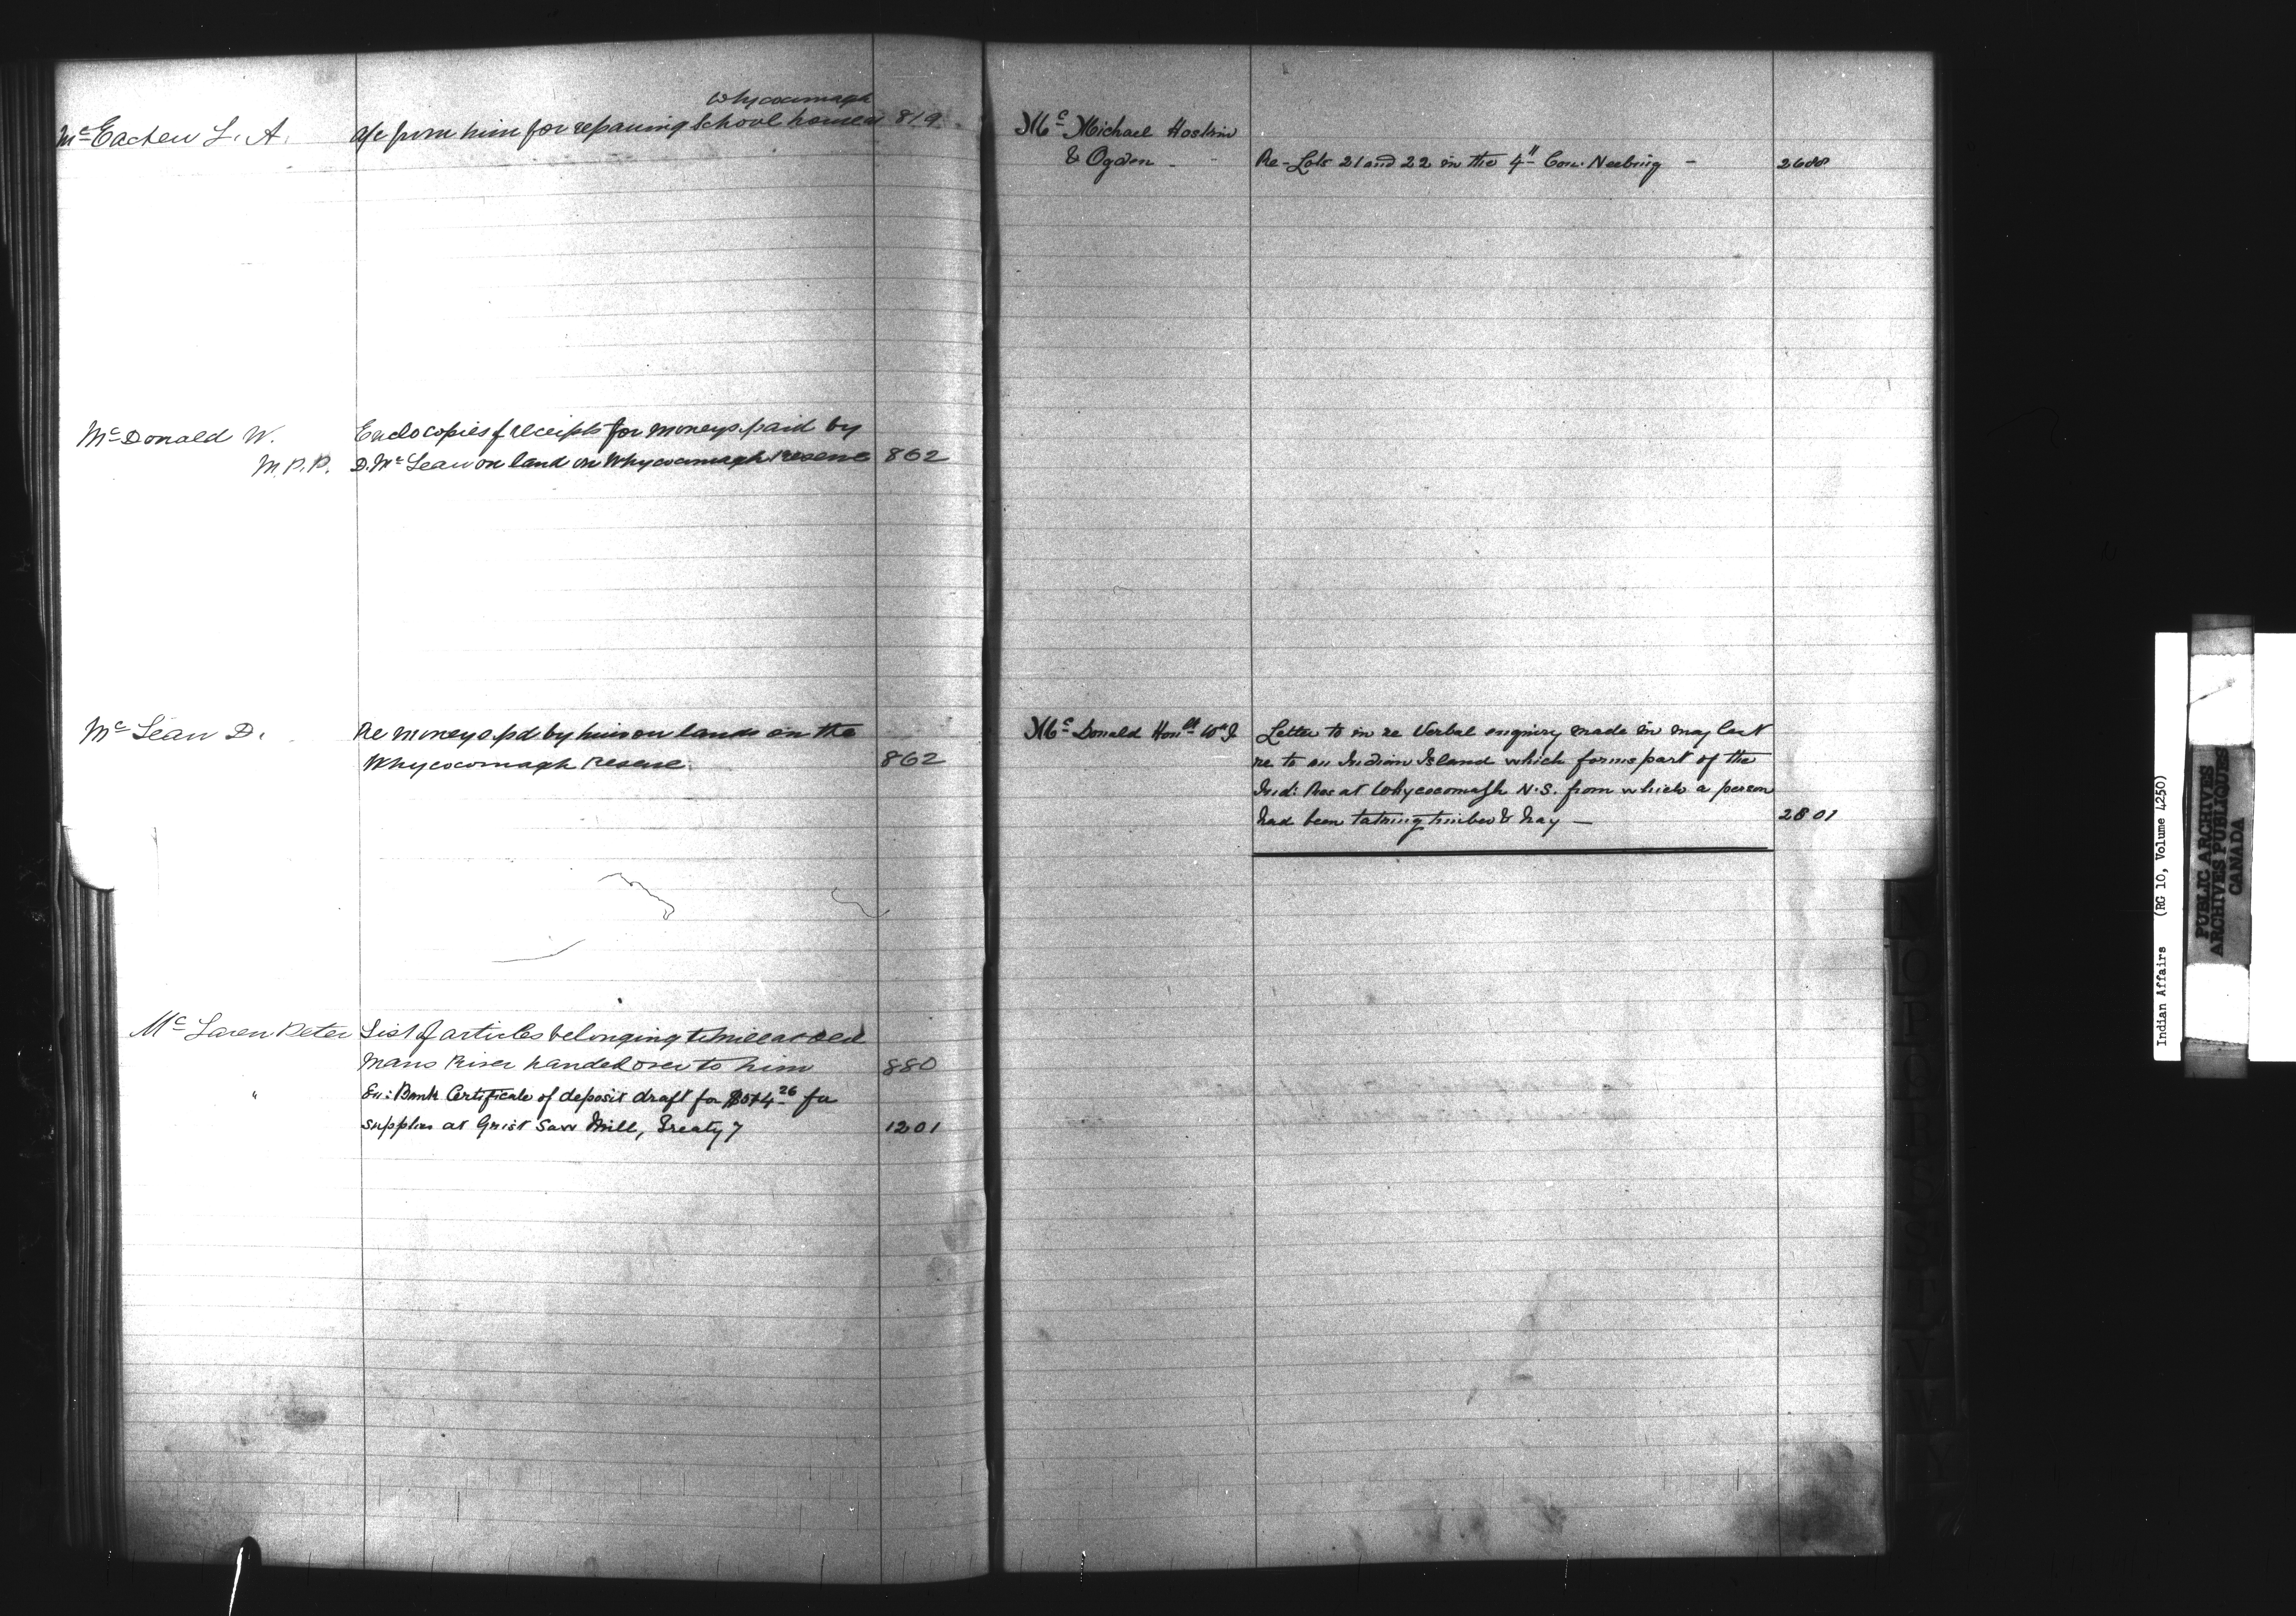 McEachen L. A. a/c from him for repairing Whycocomagh School house 819
McDonald W. Enclo copies of receipts for moneys paid by
M.P.P. D. McLean on land on Whycocomagh reserve 862
McLean D. Re moneys pd by him on lands on the
Whycocomagh reserve. 862
McLaren Peter List of articles belonging to mill at Old
Mans River handed over to him 880
" En: Bank Certificate of deposit draft for for
supplies at Grist Saw Mill, Treaty 7 1201
Mc Michael Hoskin
& Ogden - Re- Lots 21 and 22 in the 4th Con. Neebing - 2608
McDonald Honbl Wm Letter to in re Verbal enquiry made in may last
re to an Indian Island which forms part of the
Ind: Res at Whycocomagh N.S. from which a person
had been taking timber & hay - 2801
Indian Affairs (RG 10, Volume 4250)
PUBLIC ARCHIVES
ARCHIVES PUBLIQUES
CANADA
N
O
P
Q
R
S
T
V
W
Y